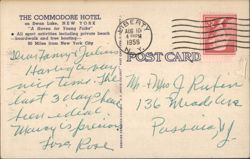 THE COMMODORE HOTEL
on Swan Lake, NEW YORK
"A Haven for Young Folks"
All sport activities including private beach
boardwalk and free boating—
80 Miles from New York City
LIBERTY
AUG 10
4 PM
1956
N.Y.
POST CARD
Dear Fanny & Julius
Having a very
nice time. The
last 3 days have
been ideal.
Love, Rose
Mr & Mrs J Rubin
136 Mead Ave
Passaic NJ